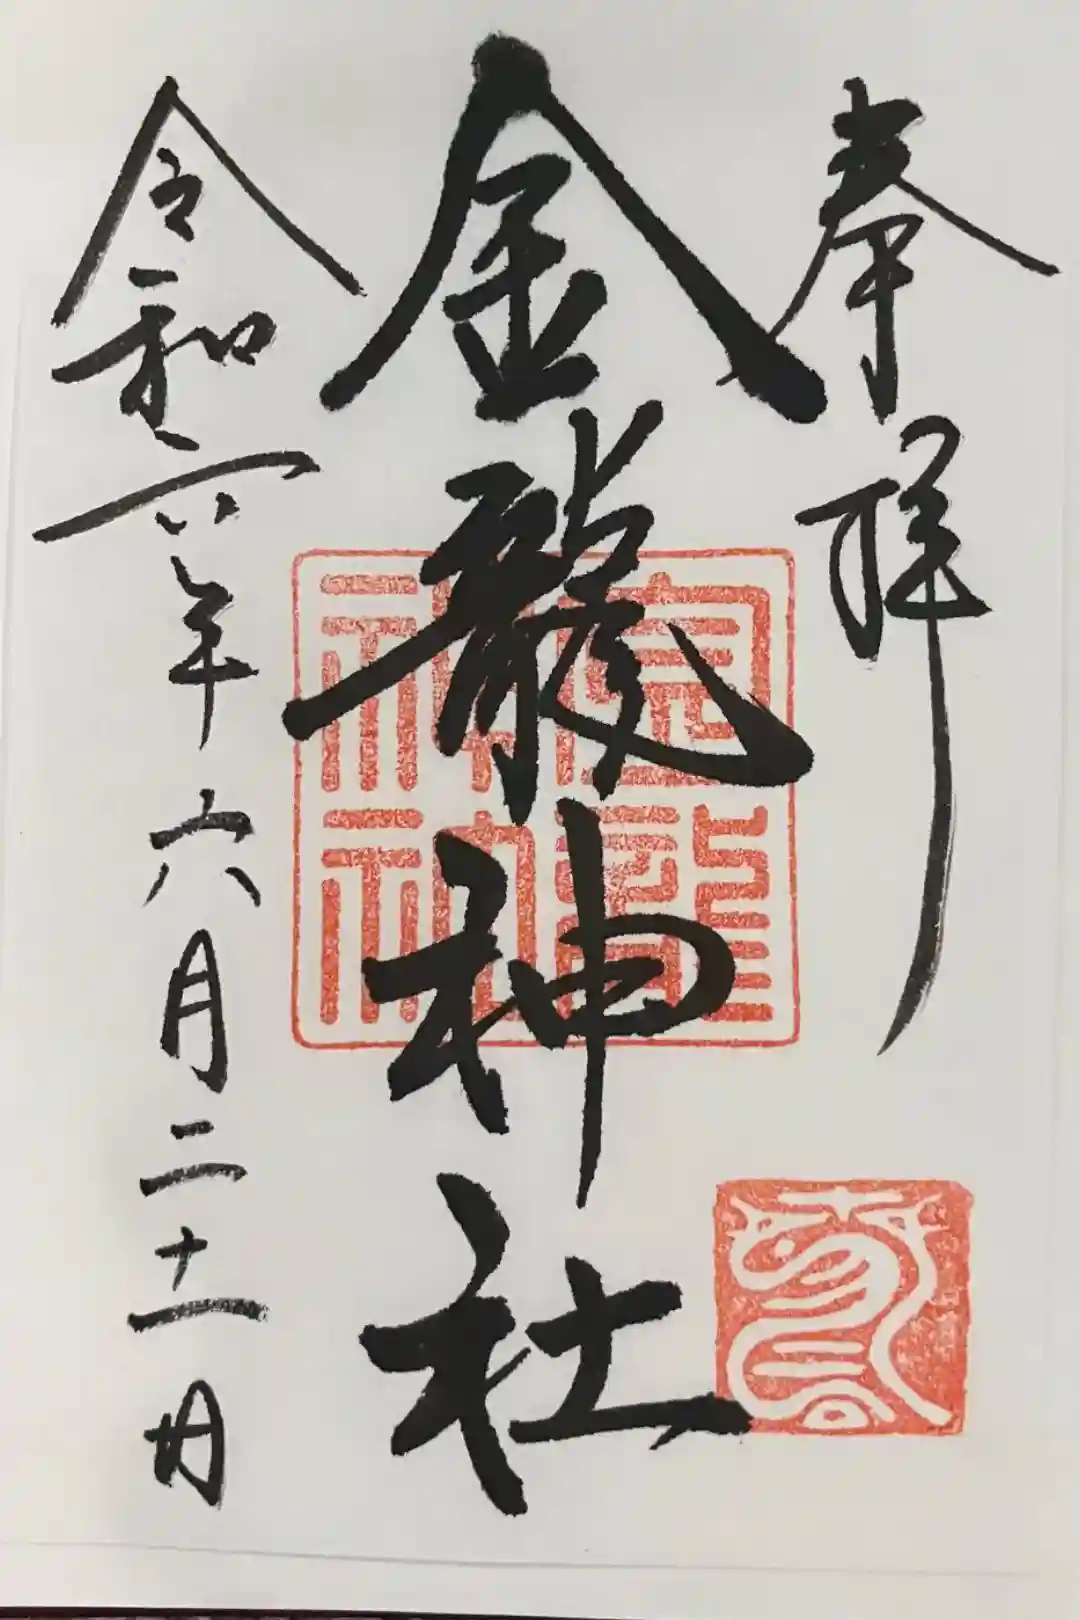 奉拝
金龍神社
金龍神社
令和六年六月二十一日